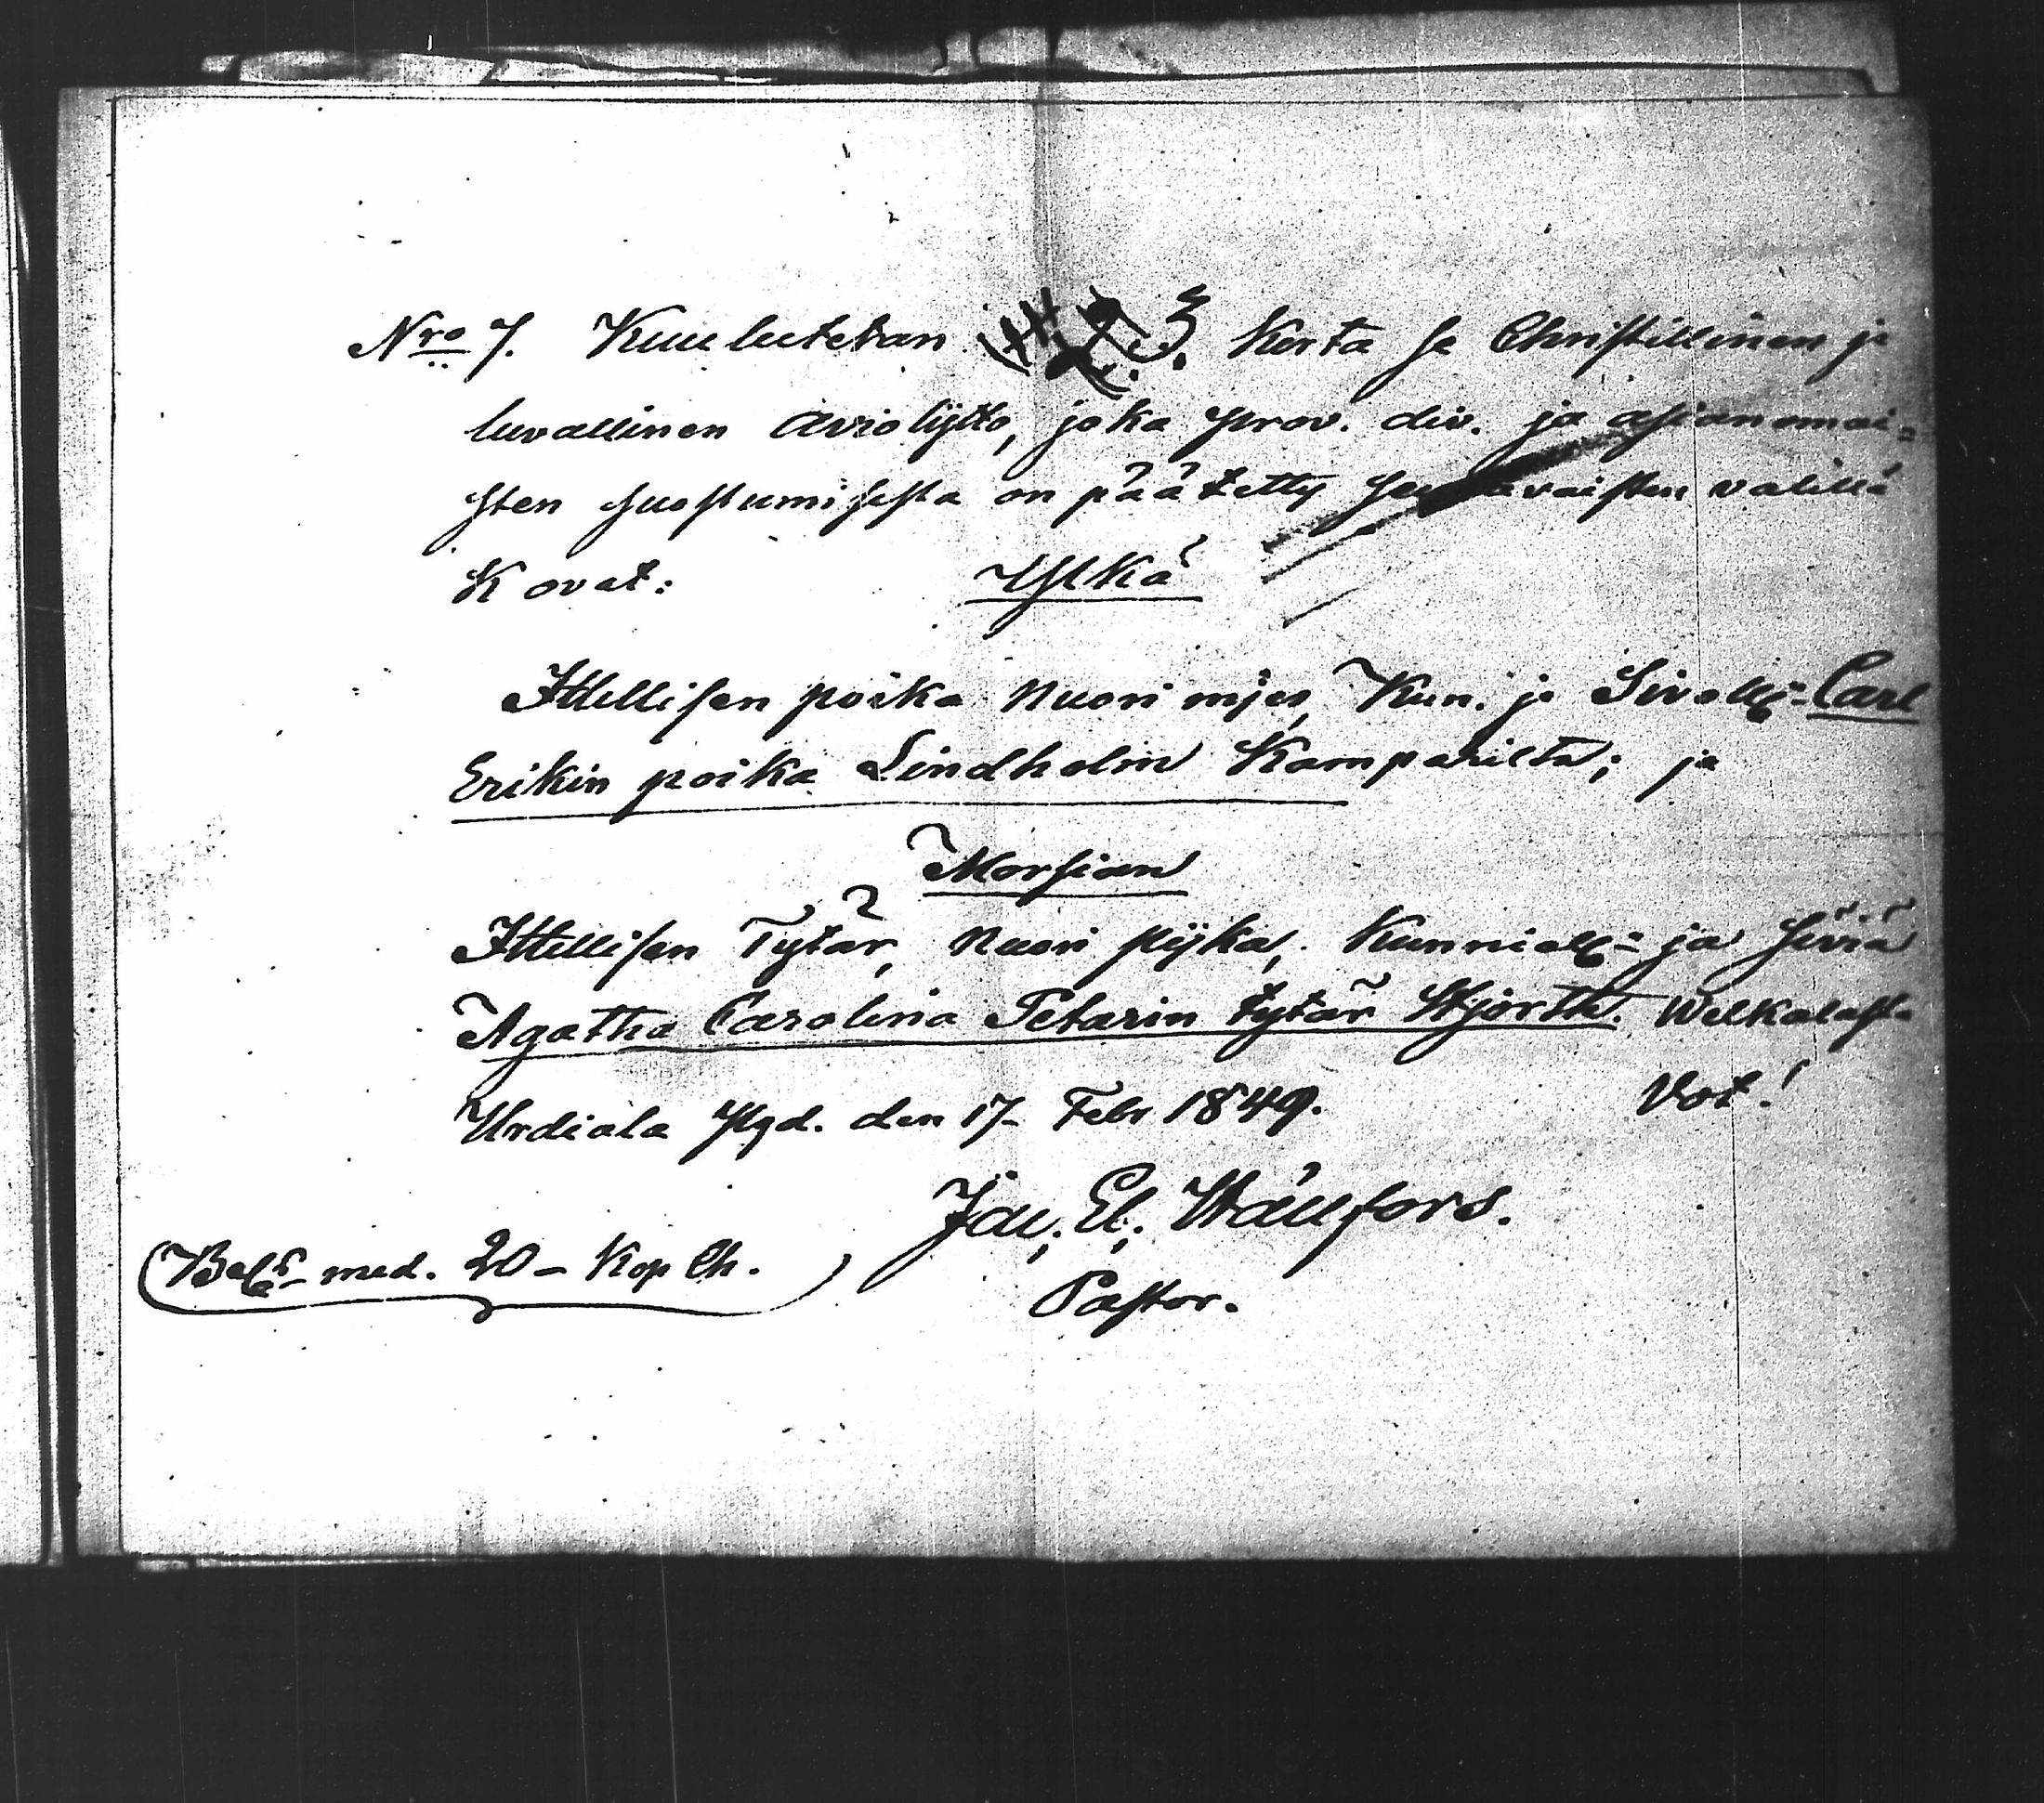 Nro 7. Kuulutetan 3. Kerta se Christillinen ja
luvallinen Avioliitto, joka prov. div. ja asianomai=
sten suostumisesta on päätetty seuravaisten välillä
K ovat: Ylkä
Ittellisen poika Nuori mjes, Kun. ja Sivoll: Carl
Erikin poika Lindholm Kamparilta; ja
Morsian
Ittellisen Tytär, Nuori pijka, Kunniall: ja siviä
Agatha Carolina Petarin tytär Hjorth. Welkalasta
Urdiala Pgd. den 17- Febr 1849. Vot!
Jac. El. Wällfors.
Pastor.
(Bet- med. 20- Kop Ch.)